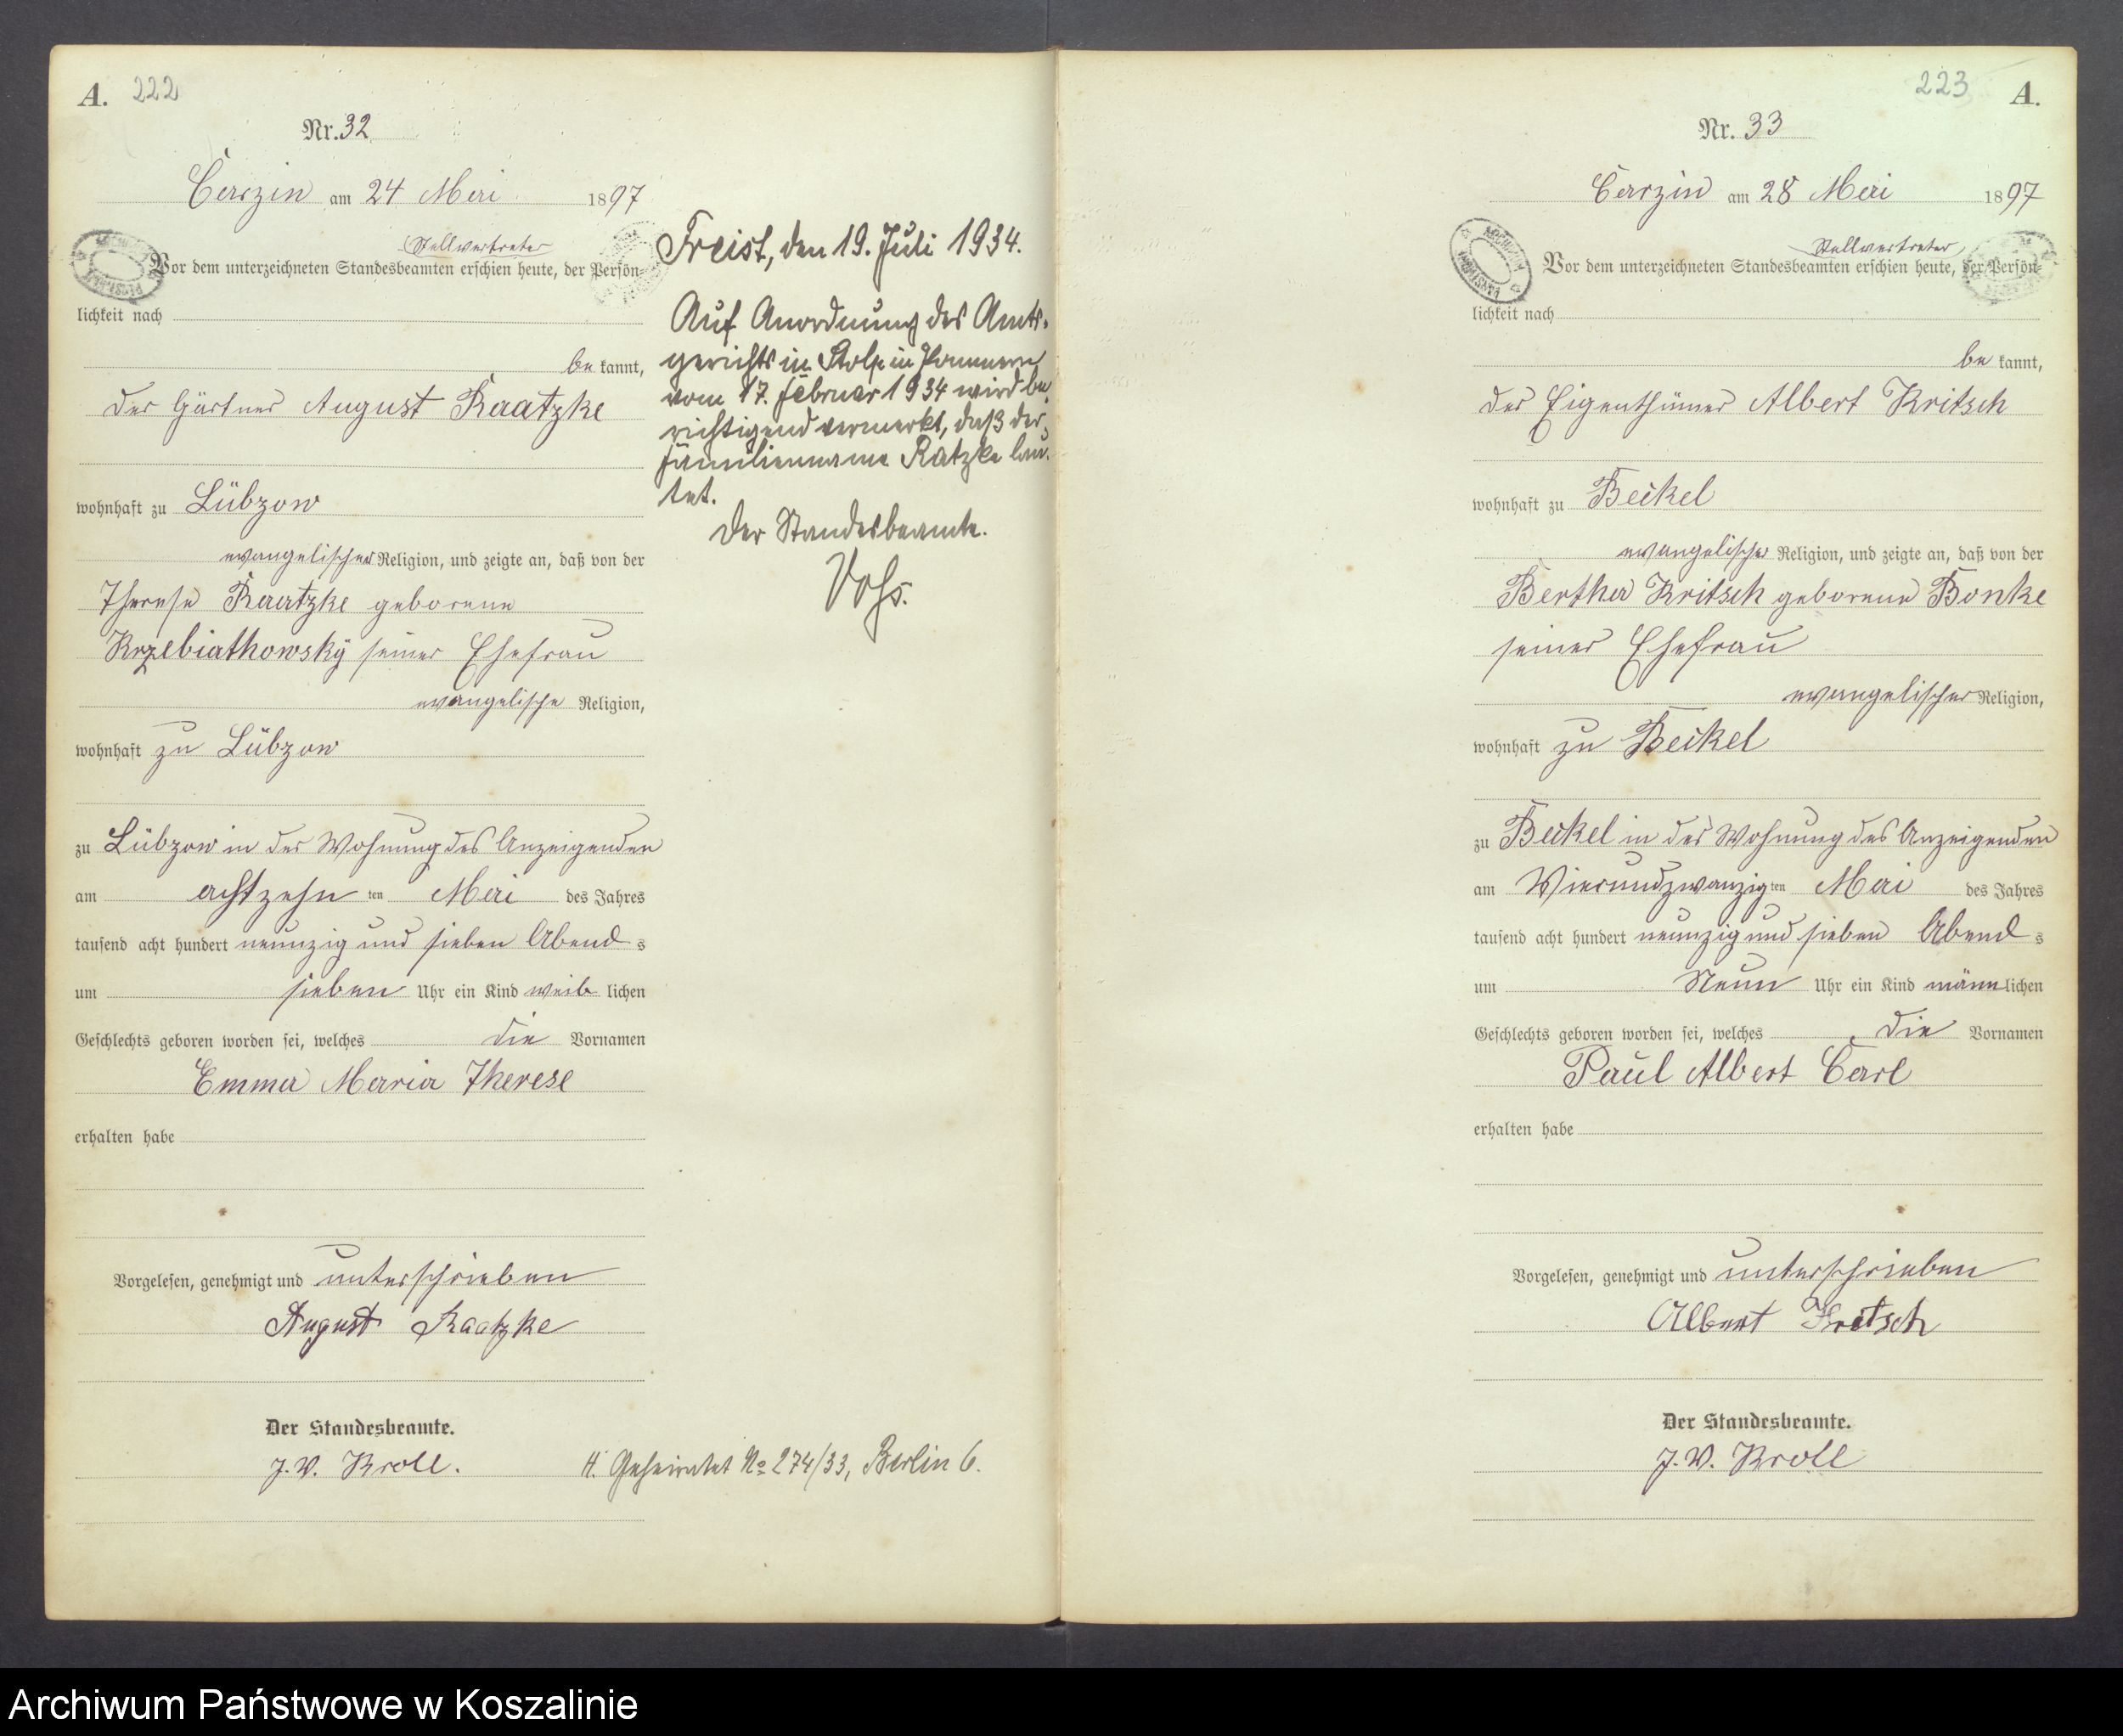 A. 222
Nr. 32
Carzin am 24 Mai 1897
Stellvertreter
Vor dem unterzeichneten Standesbeamten erschien heute, der Persön-
lichkeit nach
be kannt,
der Gärtner August Raatzke
wohnhaft zu Lübzow
evangelischer Religion, und zeigte an, daß von der
Therese Raatzke geborene
Krzebiathowsky seiner Ehefrau
evangelische Religion,
wohnhaft zu Lübzow
zu Lübzow in der Wohnung des Anzeigenden
am achtzehn ten Mai des Jahres
tausend acht hundert neunzig und sieben Abend s
um sieben Uhr ein Kind weib lichen
Geschlechts geboren worden sei, welches die Vornamen
Emma Maria Therese
erhalten habe
Vorgelesen, genehmigt und unterschrieben
August Raatzke
Der Standesbeamte.
J. V. Kroll.
Freist, den 19. Juli 1934.
Auf Anordnung des Amts-
gerichts in Stolp in Pommern
vom 17. Februar 1934 wird be-
richtigend vermerkt, daß der
Familienname Ratzke lau-
tet.
Der Standesbeamte.
Vohs.
H. Geheiratet No 274/33, Berlin 6.
223 A.
Nr. 33
Carzin am 28 Mai 1897
Stellvertreter
Vor dem unterzeichneten Standesbeamten erschien heute, der Persön-
lichkeit nach
be kannt,
der Eigenthümer Albert Kritsch
wohnhaft zu Beckel
evangelischer Religion, und zeigte an, daß von der
Bertha Kritsch geborene Bonke
seiner Ehefrau
evangelischer Religion,
wohnhaft zu Beckel
zu Beckel in der Wohnung des Anzeigenden
am Vierundzwanzig ten Mai des Jahres
tausend acht hundert neunzig und sieben Abend s
um Neun Uhr ein Kind männ lichen
Geschlechts geboren worden sei, welches die Vornamen
Paul Albert Carl
erhalten habe
Vorgelesen, genehmigt und unterschrieben
Albert Kritsch
Der Standesbeamte.
J. V. Kroll
Archiwum Państwowe w Koszalinie